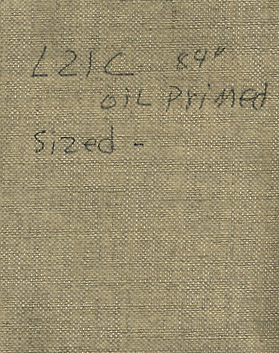 L21C 84"
OIL PRIMED
Sized -